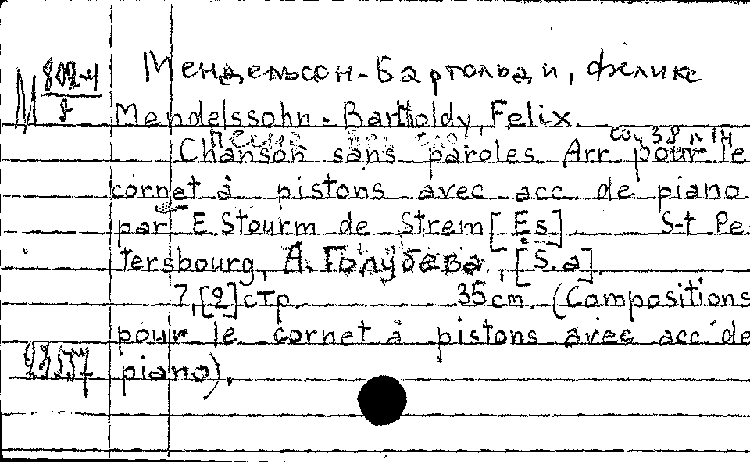 Мендельсон-Бартольди, Феликс
Mendelssohn-Bartholdy, Felix.
Песня без слов соч. 38 № 14
Chanson sans paroles Arr pour le
cornet à pistons avec acc. de piano
par E Stourm de Strem [Es] S-t Pe-
tersbourg, А. Голубева, [S.a].
7,[2] стр. 35 cm. (Compositions
pour le cornet à pistons avec acc de
piano).